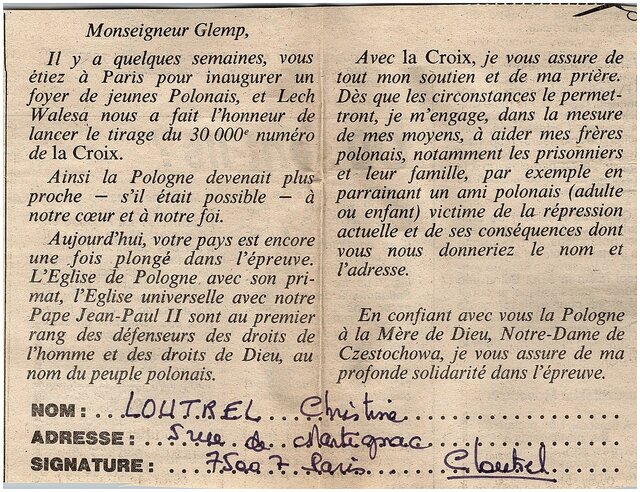 Monseigneur Glemp,
Il y a quelques semaines, vous
étiez à Paris pour inaugurer un
foyer de jeunes Polonais, et Lech
Walesa nous a fait l'honneur de
lancer le tirage du 30 000e numéro
de la Croix.
Ainsi la Pologne devenait plus
proche — s'il était possible — à
notre cœur et à notre foi.
Aujourd'hui, votre pays est encore
une fois plongé dans l'épreuve.
L'Eglise de Pologne avec son pri-
mat, l'Eglise universelle avec notre
Pape Jean-Paul II sont au premier
rang des défenseurs des droits de
l'homme et des droits de Dieu, au
nom du peuple polonais.
Avec la Croix, je vous assure de
tout mon soutien et de ma prière.
Dès que les circonstances le permet-
tront, je m'engage, dans la mesure
de mes moyens, à aider mes frères
polonais, notamment les prisonniers
et leur famille, par exemple en
parrainant un ami polonais (adulte
ou enfant) victime de la répression
actuelle et de ses conséquences dont
vous nous donneriez le nom et
l'adresse.
En confiant avec vous la Pologne
à la Mère de Dieu, Notre-Dame de
Czestochowa, je vous assure de ma
profonde solidarité dans l'épreuve.
NOM : LOUTREL Christine
ADRESSE : 5 rue de Martignac
SIGNATURE : 75007 Paris CLoutrel